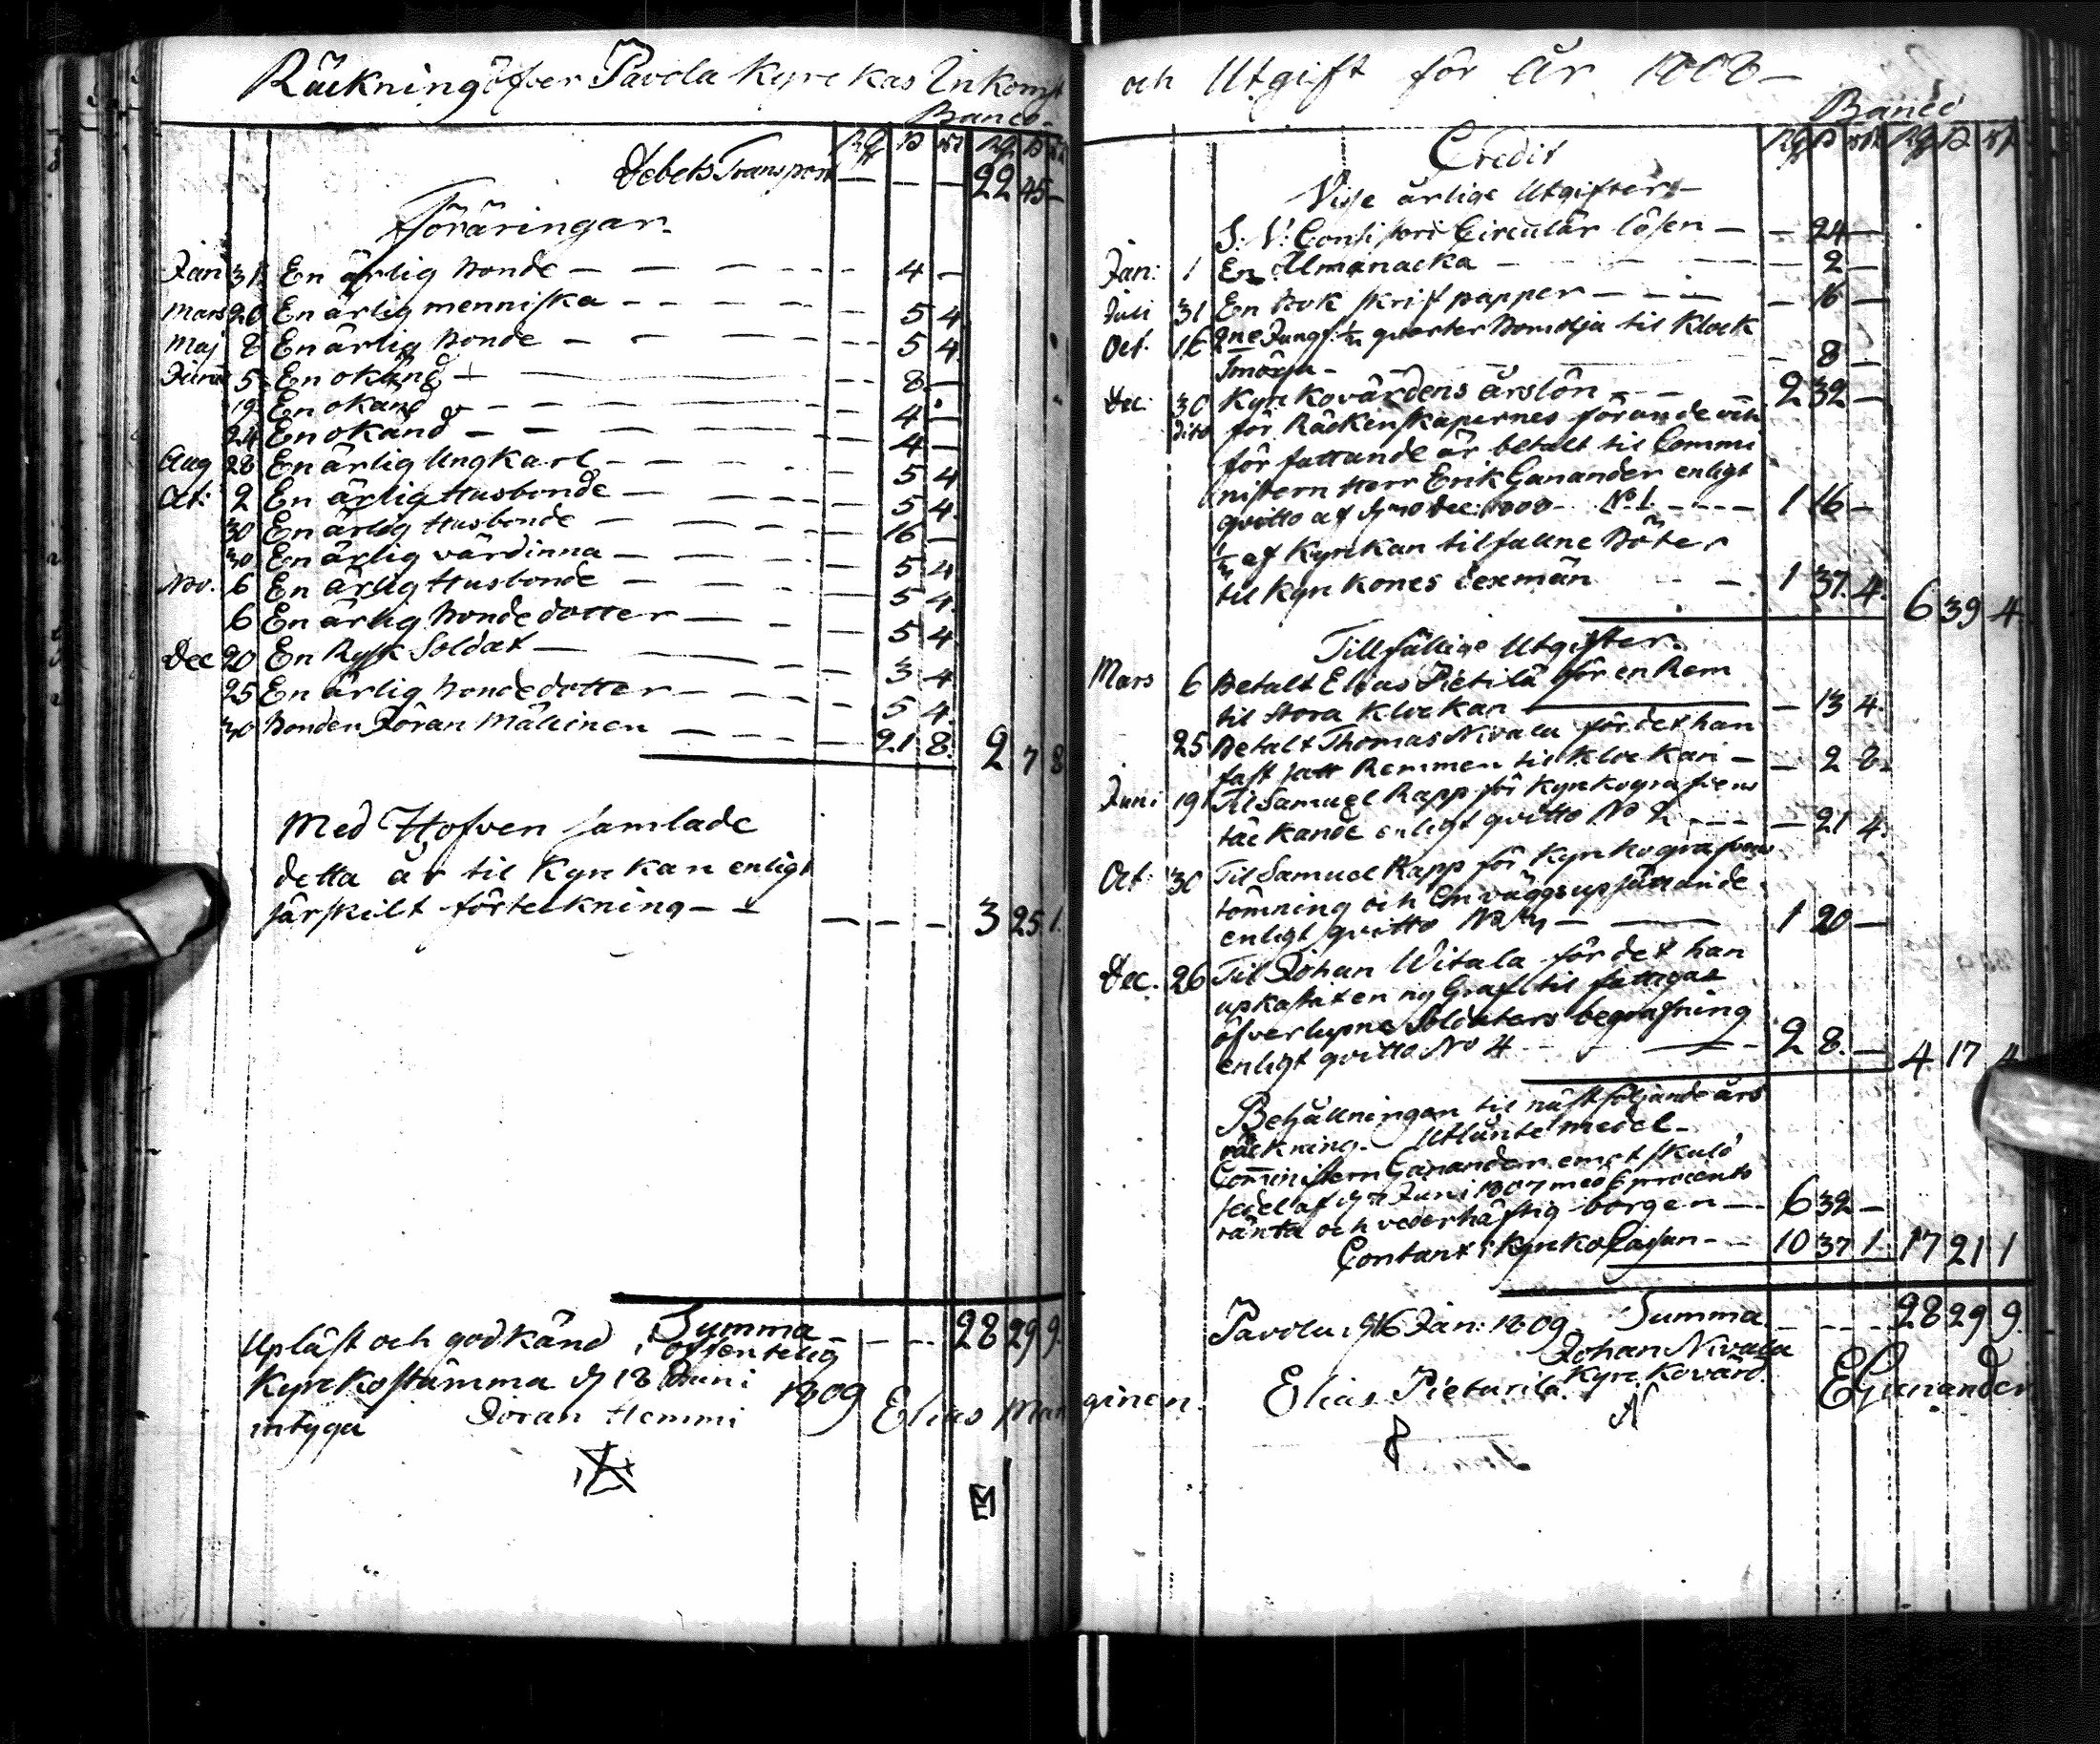 Räckning öfver Pavola Kyrckas Inkomst
Banco.
Rd ß rst Rd ß rst
Debets Transport — — — 22 45 —
Föräringar.
Jan 31 En ärlig bonde — — — — 4 —
Mars 20 En ärlig menniska — — — 5 4
Maj 8 En ärlig bonde — — — 5 4
Junii 5 En okänd — — 8 —
19 En okänd — — — 4 —
24 En okänd — — — 4 —
Aug 28 En ärlig Ungkarl — — — 5 4
Oct: 2 En ärlig Husbonde — — — 5 4.
30 En ärlig Husbonde — — — 16 —
30 En ärlig värdinna — — — 5 4
Nov. 6 En ärlig Husbonde — — — 5 4.
6 En ärlig bondedotter — — — 5 4
Dec 20 En Rysk Soldat — — — 3 4
25 En ärlig bondedotter — — — 5 4.
30 Bonden Jöran Mällinen — — — 21 8. 2 7 8
Med Hofven samlade
detta år til Kyrckan enligt
särskilt förteckning — — — — — 3 25 1.
Summa — — — 28 29 9.
Upläst och godkänd i offentelig
Kyrckostämma d 18 Juni 1809
intyga Jöran Hemmi Elias Man
och Utgift för år 1808 —
Banco
Credit Rd ß rst Rd ß rst
Visse årlige Utgifter —
S: V: Consistorii Circulär lösen — — 24 —
Jan: 1 En Almanacka — — — 2 —
Juli 31 En bok skrifpapper — — — — 16 —
Oct. 16 2ne Jungf: 1/2 quarter bomolja til Klock
smörja — — 8 —
Dec. 30 Kyrckovärdens årslön — — 2 32 —
dito för Räckenskapernes förande och
författande är betalt til Commi
nistern Herr Erik Ganander enligt
qvitto af d 30 dec: 1808 — No 1. — — 1 16 —
af Kyrckan tilfallne Böter
til Kyrckones sexmän — — 1 37. 4. 6 39 4.
Tillfällige Utgifter.
Mars 6 Betalt Elias Pietilä för en Rem
til stora Klockan — — 13 4.
25 Betalt Thomas Nivala för det han
fast satt Remmen til Klockan — — 2 8.
Juni 19 Til Samuel Rapp för Kyrckografvens
täckande enligt qvitto No 2 — — — 21 4.
Oct: 30 Til Samuel Rapp för Kyrckografvens
tömning och En väggs upsättande
enligt qvitto No 3 — — 1 20 —
Dec. 26 Til Johan Witala för det han
upkastat en ny Graf til fattigas
öfverlupne Soldaters begrafning
enligt qvitto No 4 — — 2 8. — 4. 17 4
Behållningen til nästföljande års
räckning. Utlånte medel —
Comministern Ganander emot skuld
sedel af d 7 Juni 1807 med 6 procents
ränta och vederhäftig borgen — 6 32 —
Contant i Kyrckocassan — — 10 37 1. 17 21 1
Pavola d 16 Jan: 1809. Summa — — — 28 29 9.
Johan Nivala
Kyrckovärd.
ginen. Elias Pieturila. EGanander